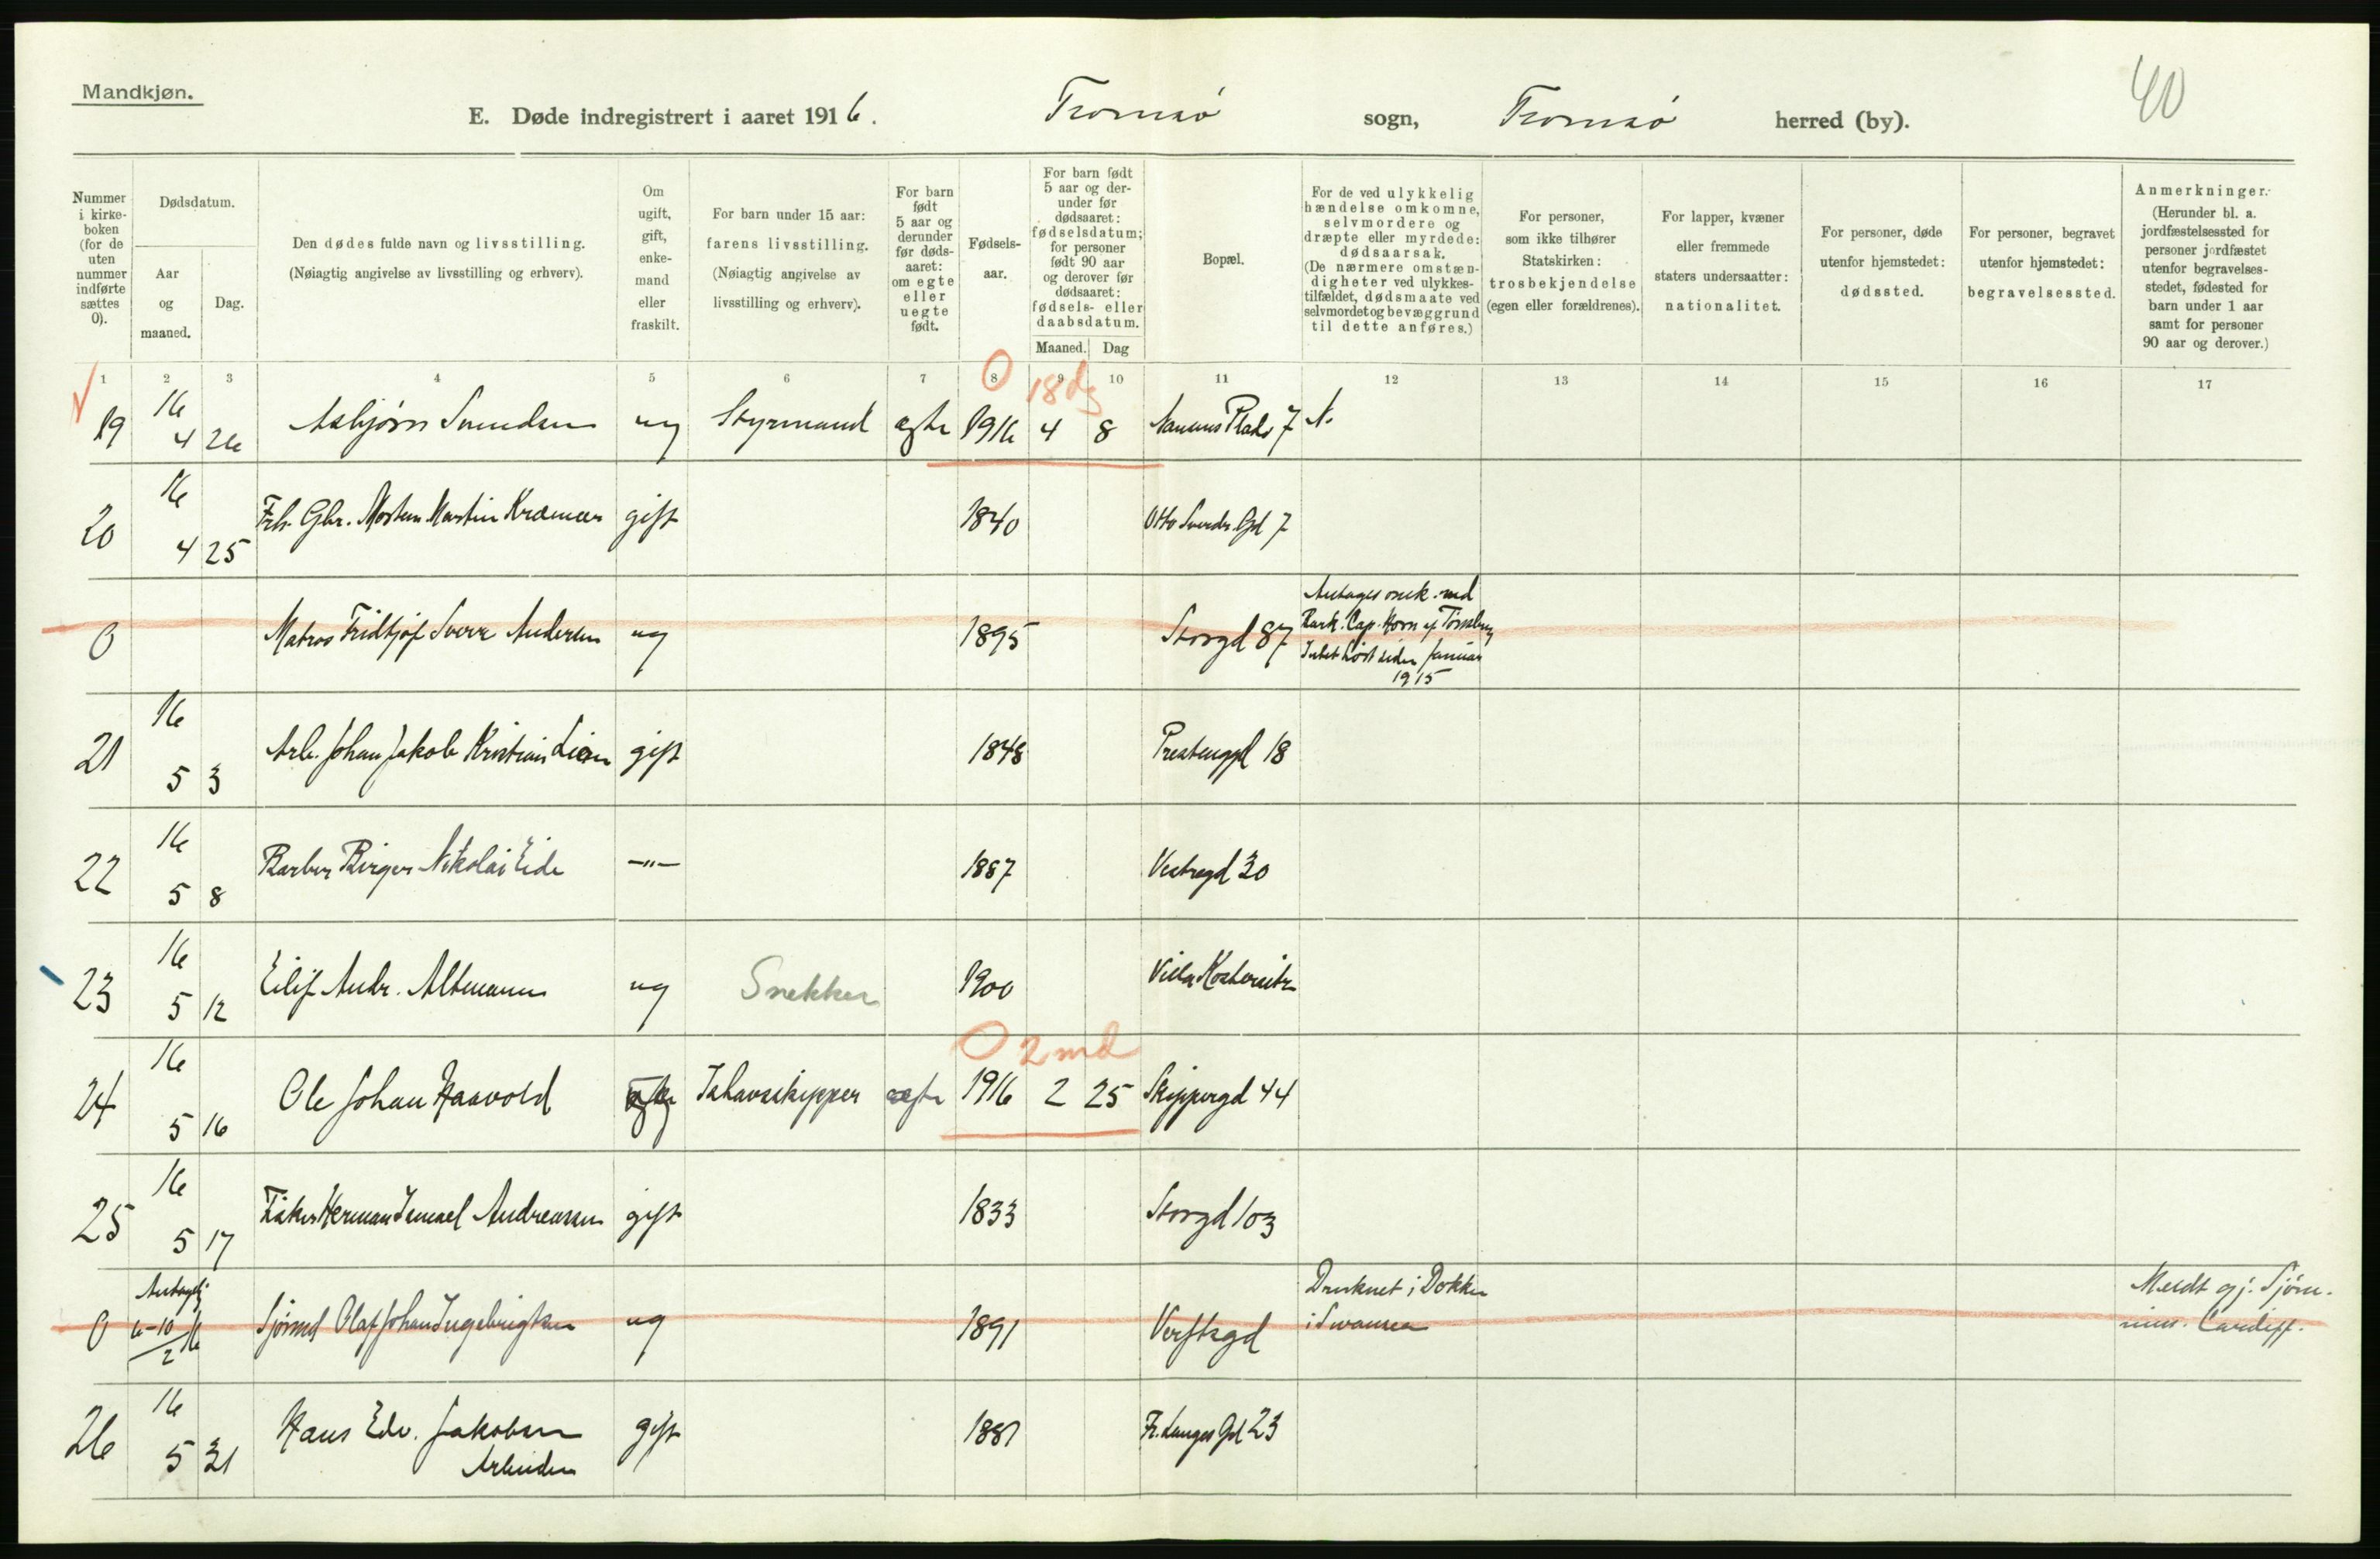 Mandkjøn.
40
E. Døde indregistrert i aaret 1916. Tromsø sogn, Tromsø herred (by).
Nummer i kirke-boken (for de uten nummer indførte sættes 0).
Dødsdatum.
Aar og maaned.
Dag.
Den dødes fulde navn og livsstilling.
(Nøiagtig angivelse av livsstilling og erhverv).
Om ugift, gift, enke-mand eller fraskilt.
For barn under 15 aar: farens livsstilling.
(Nøiagtig angivelse av livsstilling og erhverv).
For barn født 5 aar og derunder før døds-aaret: om egte eller uegte født.
Fødsels-aar.
For barn født 5 aar og der-under før dødsaaret: fødselsdatum; for personer født 90 aar og derover før dødsaaret: fødsels- eller daabsdatum.
Maaned. Dag
Bopæl.
For de ved ulykkelig hændelse omkomne, selvmordere og dræpte eller myrdede: dødsaarsak.
(De nærmere omstæn-digheter ved ulykkes-tilfældet, dødsmaate ved selvmordet og bevæggrund til dette anføres.)
For personer, som ikke tilhører Statskirken: trosbekjendelse (egen eller forældrenes).
For lapper, kvæner eller fremmede staters undersaatter: nationalitet.
For personer, døde utenfor hjemstedet: dødssted.
For personer, begravet utenfor hjemstedet: begravelsessted.
Anmerkninger.
(Herunder bl. a. jordfæstelsessted for personer jordfæstet utenfor begravelses-stedet, fødested for barn under 1 aar samt for personer 90 aar og derover.)
1 2 3 4 5 6 7 8 9 10 11 12 13 14 15 16 17
0 18 dg
19 16 4 26 Asbjørn Svendsen ug Styrmand egte 1916 4 8 Nansens Plads 7 N.
20 16 4 25 Frh. Gbr. Morten Martin Kræmer gift 1840 Otto Sverdr. Gd 7
0 Matros Fridtjof Sverr Andersen ug 1895 Storgd 87 Antages omk. md
Bark. Cap. Horn af Tønsberg
Intet hørt siden januar
1915
21 16 5 3 Arb. Johan Jakob Kristian gift 1848 Prestenggd 18
22 16 5 8 Barber Birger Nikolai Eide —"— 1887 Vestregd 30
23 16 5 12 Eilif Andr. Altmann ug Snekker 1900 Villa
0 2 md
24 16 5 16 Ole Johan Haavold ug Ishavsskipper egte 1916 2 25 Skippergd 44
25 16 5 17 Fisker Herman Ismael Andreassen gift 1833 Storgd 103
0 Antagelig 6-10/2 16 Sjømd Olaf Johan Ingebrigtsen ug 1891 Verftsgd Druknet i Dokken
i Swansea
Meldt gj. Sjøm.
miss. Cardiff.
26 16 5 31 Hans Edv. Jakobsen gift 1881 Fr. Langes Gd 23
Arbeider